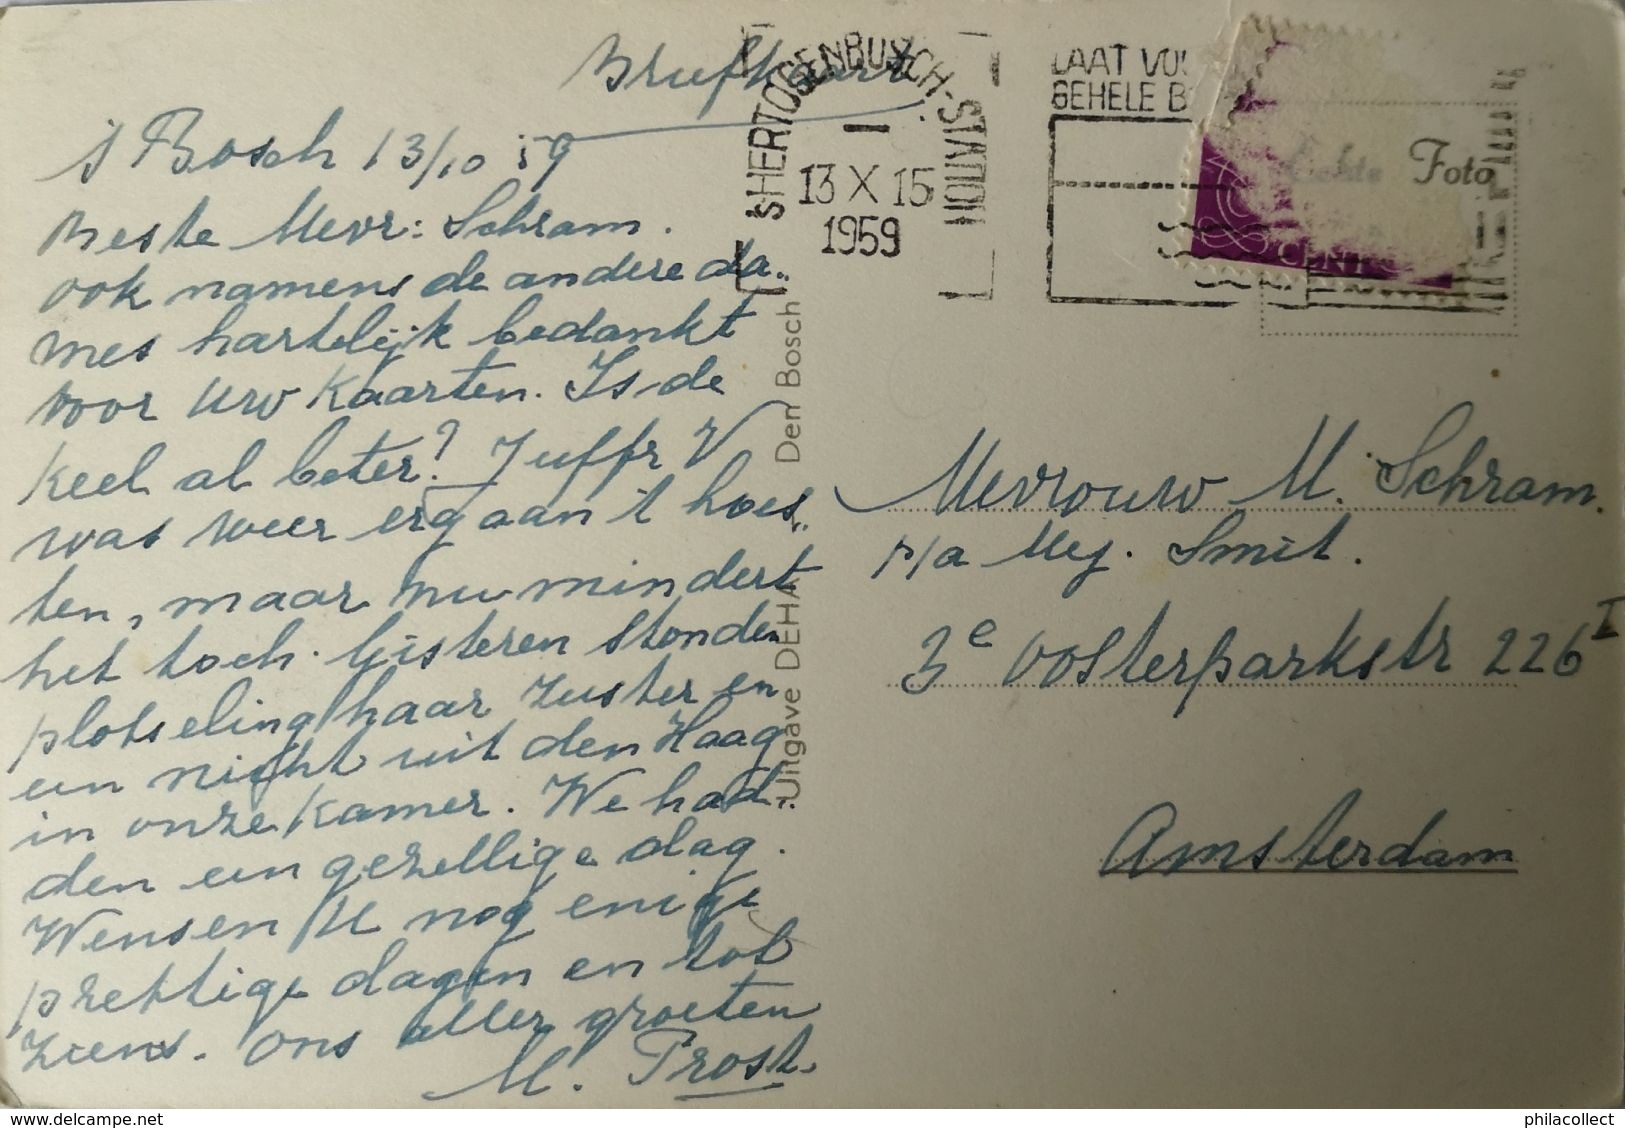 Briefkaart
's Bosch 13/10 59
Beste Mevr: Schram.
ook namens de andere da-
mes hartelijk bedankt
voor Uw Kaarten. Is de
Keel al beter? Juffr V
was weer erg aan 't hoes-
ten, maar nu mindert
het toch. Gisteren stonden
plotseling haar zuster en
een nicht uit den Haag
in onze Kamer. We had-
den een gezellige dag.
Wensen U nog enige
prettige dagen en tot
ziens. Ons aller groeten
M. Prost.
Uitgave DEHA Den Bosch
'sHERTOGENBOSCH-STATION
13 X 15
1959
LAAT VO
GEHELE B
CENT
Echte Foto
Mevrouw M. Schram.
p/a Mej. Smit.
3e Oosterparkstr 226 I
Amsterdam
philacollect
https://www.delcampe.net